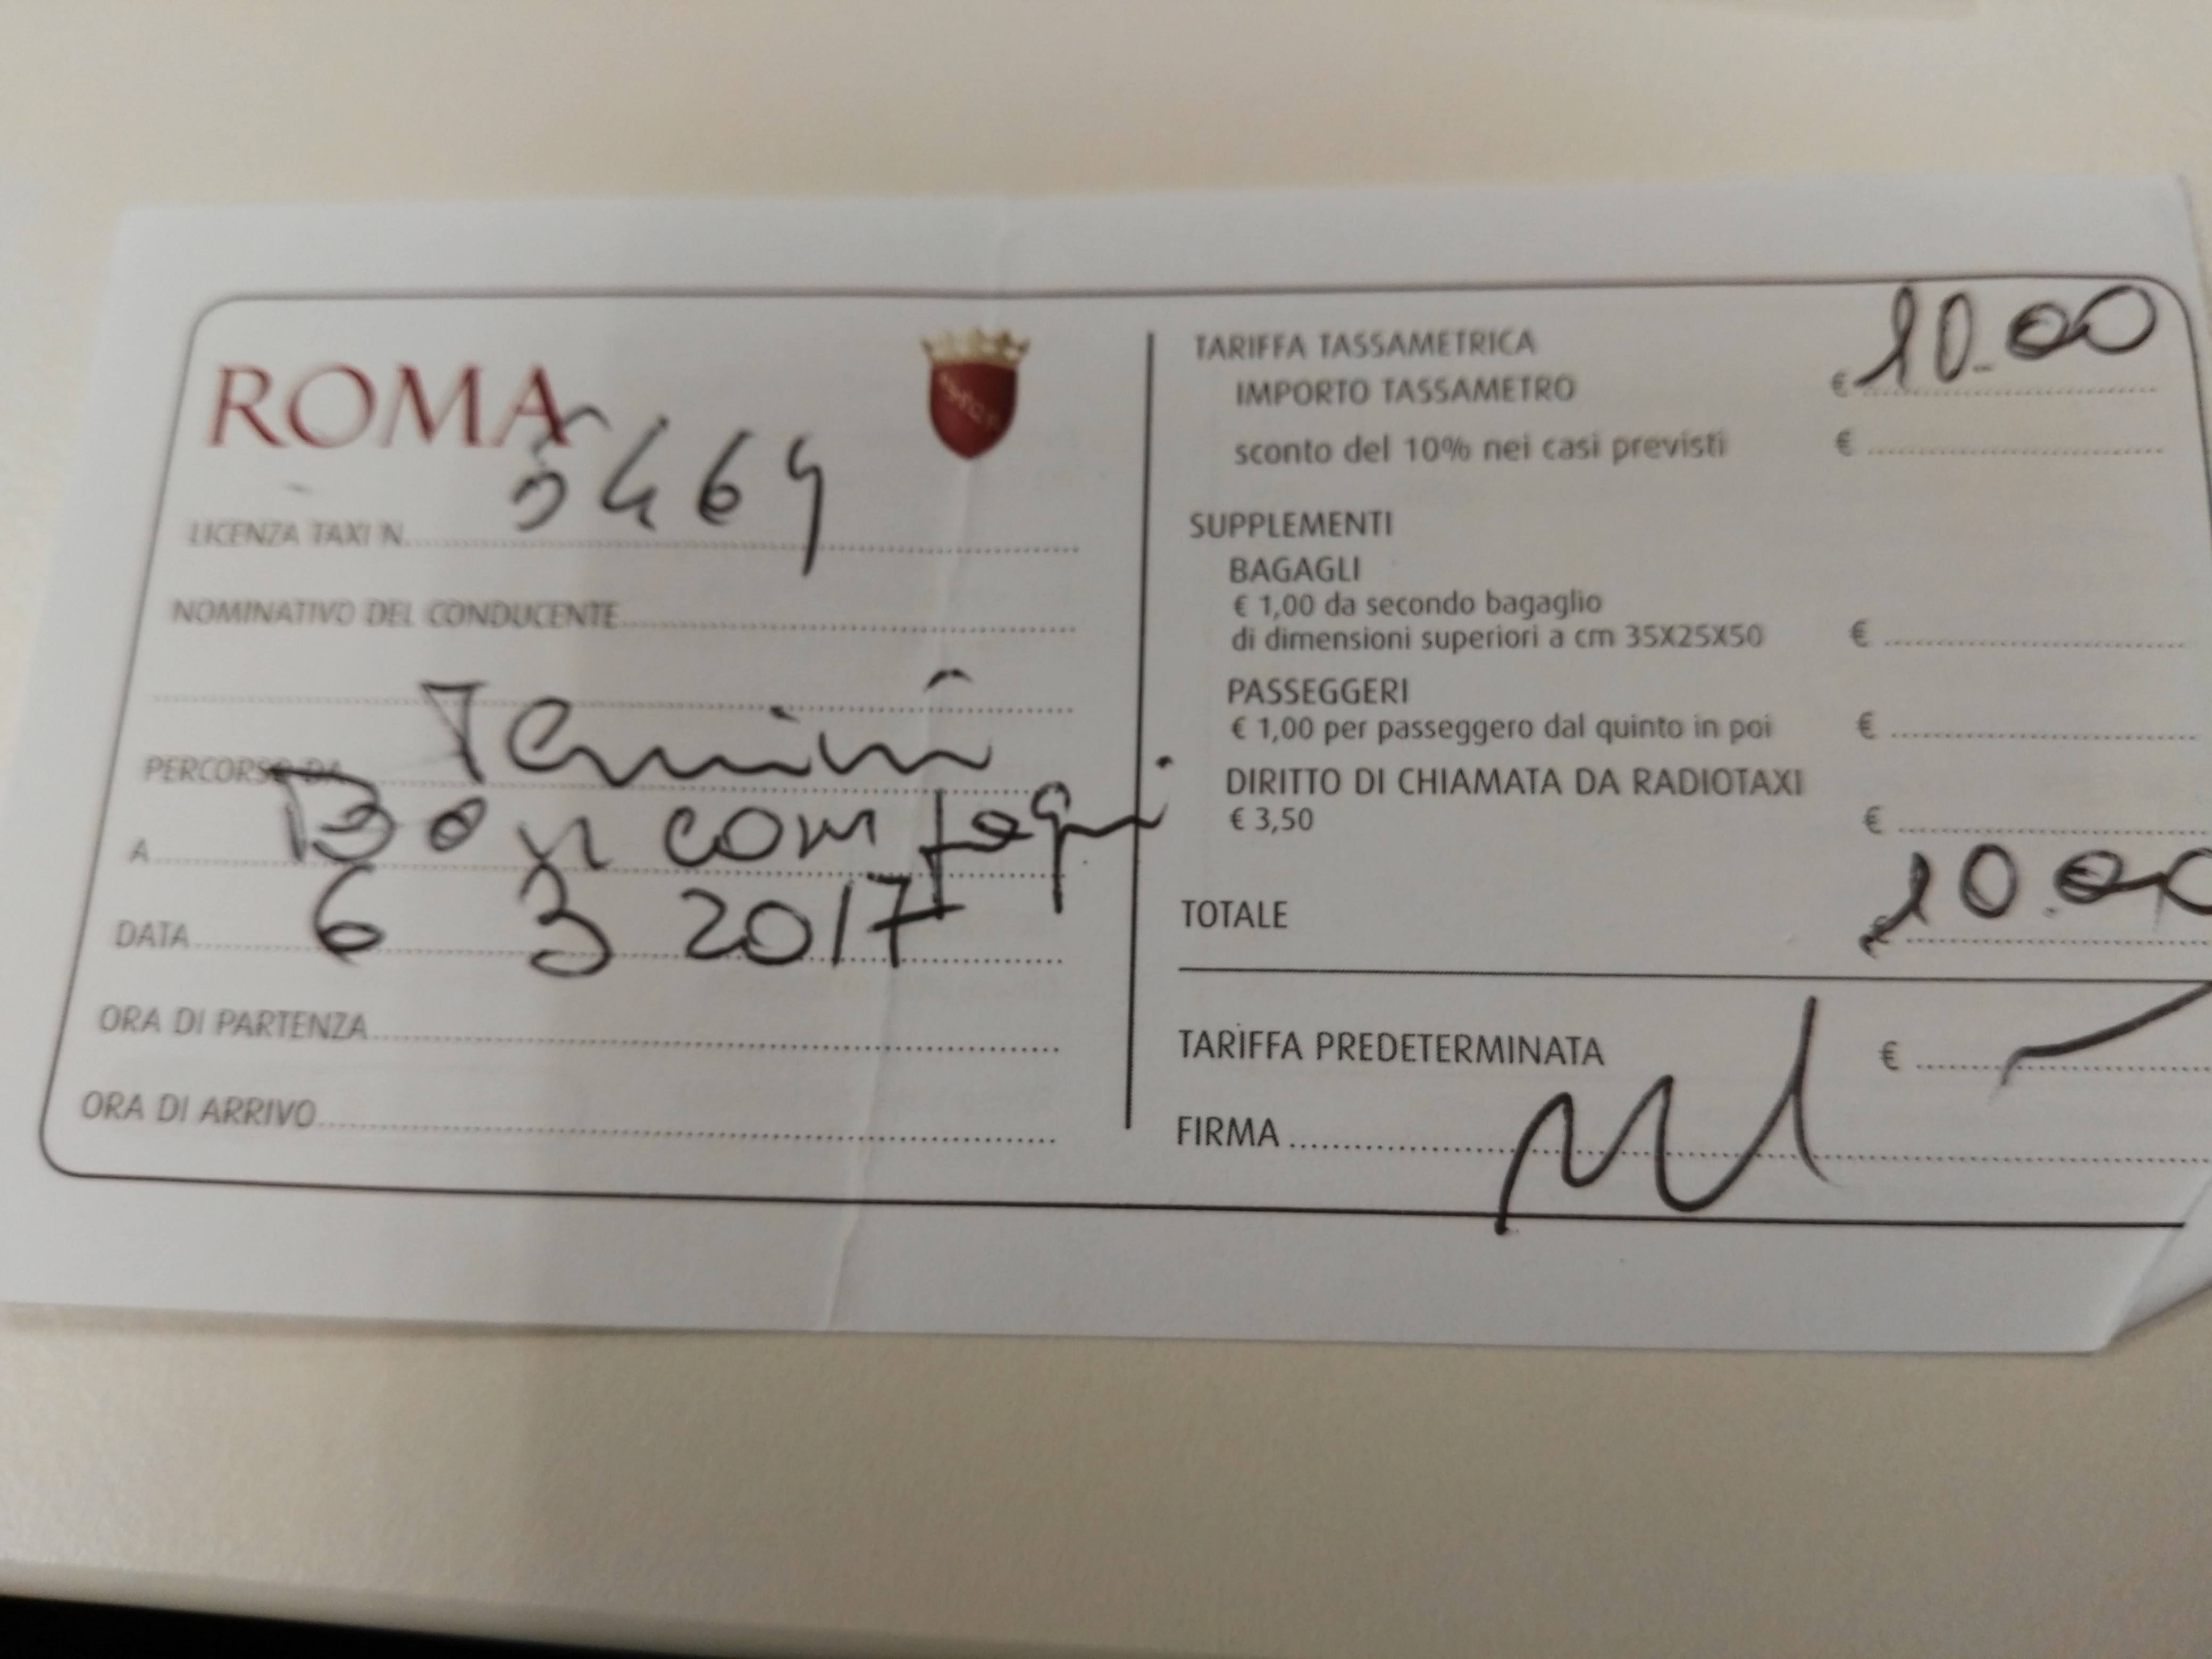 ROMA
LICENZA TAXI N. 5464
NOMINATIVO DEL CONDUCENTE
PERCORSO DA Termini
A Boncompagni
DATA 6 3 2017
ORA DI PARTENZA
ORA DI ARRIVO
TARIFFA TASSAMETRICA
IMPORTO TASSAMETRO € 10.00
sconto del 10% nei casi previsti €
SUPPLEMENTI
BAGAGLI
€ 1,00 da secondo bagaglio
di dimensioni superiori a cm 35X25X50 €
PASSEGGERI
€ 1,00 per passeggero dal quinto in poi €
DIRITTO DI CHIAMATA DA RADIOTAXI
€ 3,50 €
TOTALE € 10.00
TARIFFA PREDETERMINATA €
FIRMA